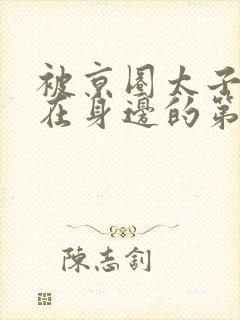 被京圈太子
在身邊的第
陳志釗